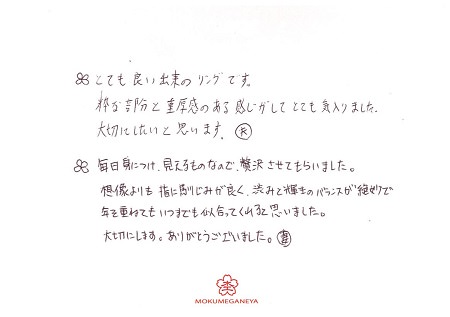 とても良い出来のリングです。
粋な部分と重厚感のある感じがしてとても気入りました。
大切にしたいと思います。
毎日身につけ、見えるものなので、贅沢させてもらいました。
想像よりも指に馴じみが良く、渋みと輝きのバランスが絶妙で
年を重ねてもいつまでも似合ってくれると思いました。
大切にします。ありがとうございました。
MOKUMEGANEYA